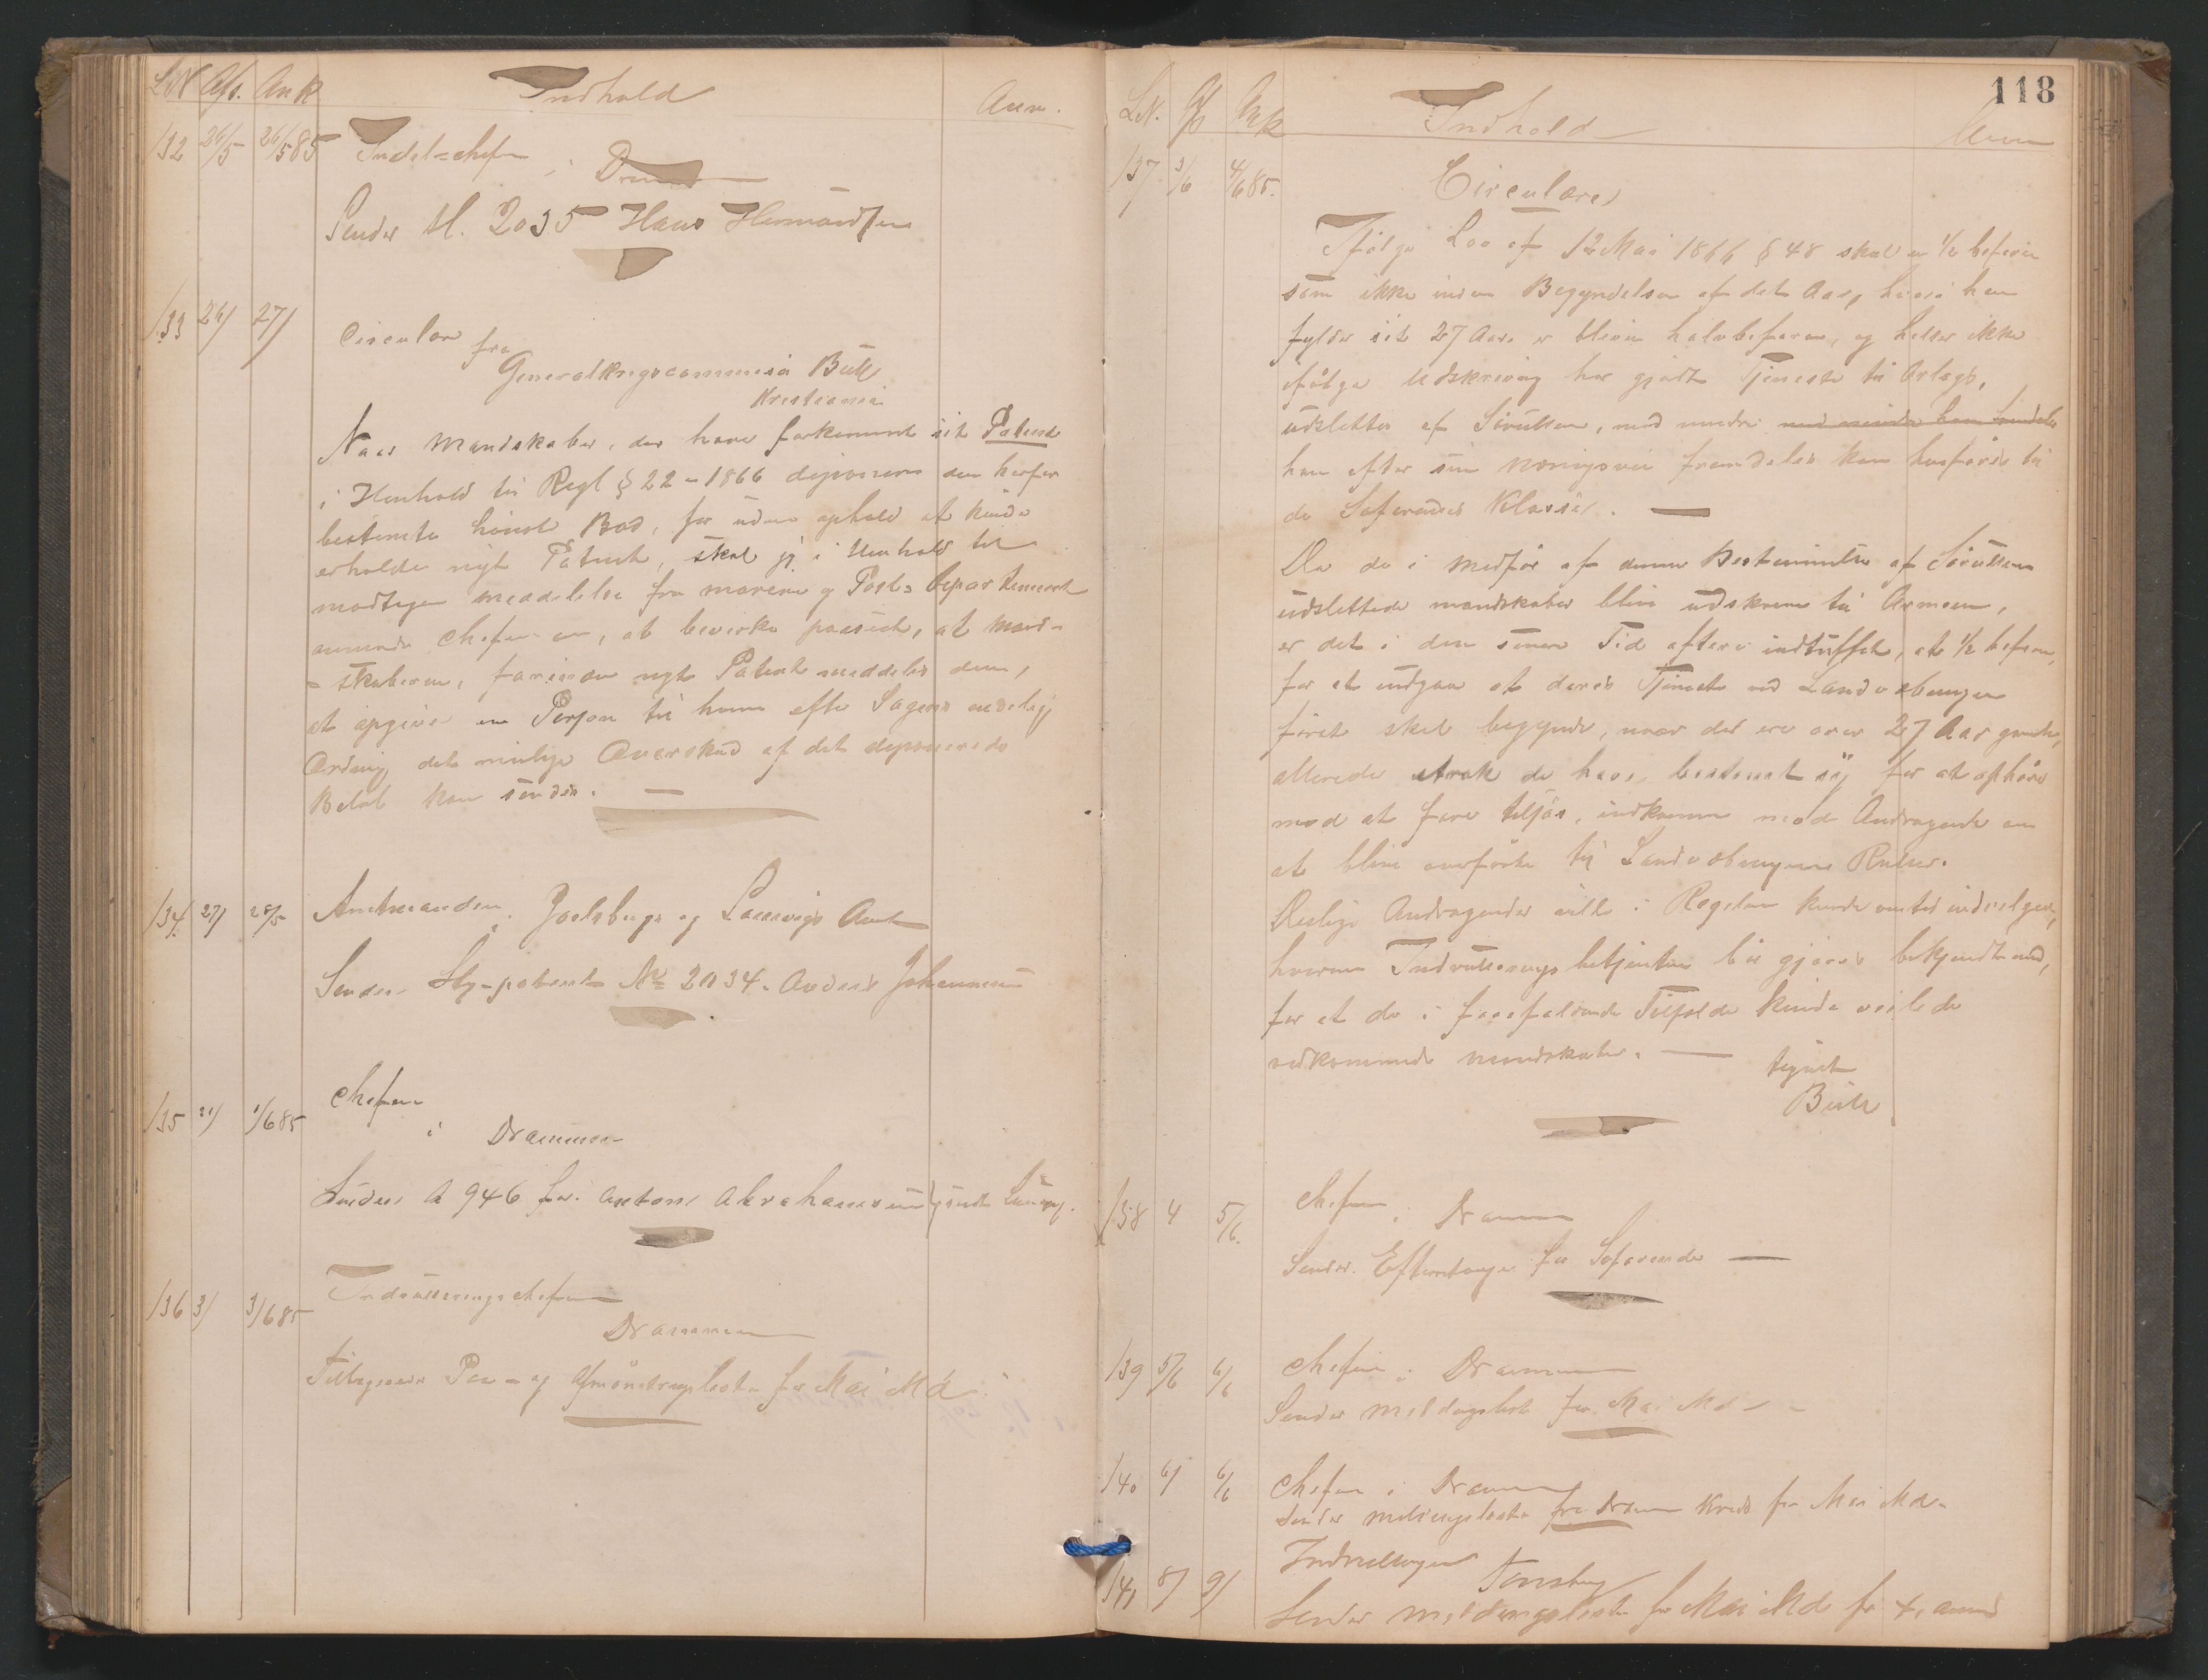 LN Afs. Ank Indhold Anm.
132 26/5 26/5 85 Indul=chefen i Drammen
Sender H. 2035 Hans Hermandsen
133 26/ 27/ Circulære fra
Generalkrigscommisær Bull
Kristiania
Naar Mandskaber, der have forkommet sit Patent
i Henhold til Regl § 22 - 1866 deponerer den herfor
bestemte höieste Bod, for uden ophold at kunde
erholde nyt Patent, skal jeg i Henhold til
modtagen meddelelse fra marine og Post=Departement
anmode Chefen om, at bevirke paaseet, at Mand-
-skaberne, forinden nyt Patent meddeles dem,
at opgive en Person til hvem efter Sagens endelige
Ordning det mulige Overskud af det deponerede
Beløb kan sendes. —
134 27/ 28/5 Amtmanden i Jarlsbergs og Laurvigs Amt
Sender Sty-patent No 2034. Anders Johannesen
135 31/ 1/6 85 Chefen
i Drammen
Sender A 946 for Anton Abrahamsen
136 3/ 3/6 85 Indrulleringschefen
Drammen
Tilbagesender Paa- og Afmönstringsliste for Mai Md.
118
LN. Afs Ank Indhold Anm
137 3/6 4/6 85. Circulære
Ifölge Lov af 12 Mai 1866 § 48 skal en 1/2 befaren
som ikke inden Begyndelsen af det Aar, hvori han
fylder sit 27 Aar er bleven halvbefaren, og heller ikke
ifölge Udskrivning har gjort Tjeneste til Orlogs,
udslettes af Sörullen, med mindre med mindre han fremdeles
han efter sin næringsvei fremdeles kan henföres til
de Söfarendes Klasse. —
Da de i Medför af denne Bestemmelse af Sörullen
udslettede mandskaber blive udskrevne til Armeen,
er det i den senere Tid oftere indtruffet, at 1/2 befarne,
for at undgaa at deres Tjeneste ved Landværnet
först skal begynde, naar de ere over 27 Aar gamle,
allerede strak de have bestemt sig for at ophöre
med at fare tilsjös, indkomme med Andragende om
at blive overförte til Landværnets Ruller.
Deslige Andragender ville i Regelen kunde ventes indvilget,
hvorom Indrulleringsbetjentene bör gjöres bekjendt med,
for at de i forefaldende Tilfælde kunde veilede
vedkommende mandskaber. — tegnet
Bull
138 4 5/6. Chefen i Drammen
Sender Efterretninger for Söfarende —
139 5/6 6/6 Chefen i Drammen
Sender meldingsliste for Mai Md -
140 6/ 6/6 Chefen i Drammen
Sender meldingsliste fra Dram Kreds for Mai Md.
141 8/ 9/ Indrulleringen Tönsberg
Sender meldingsliste for Mai Md for